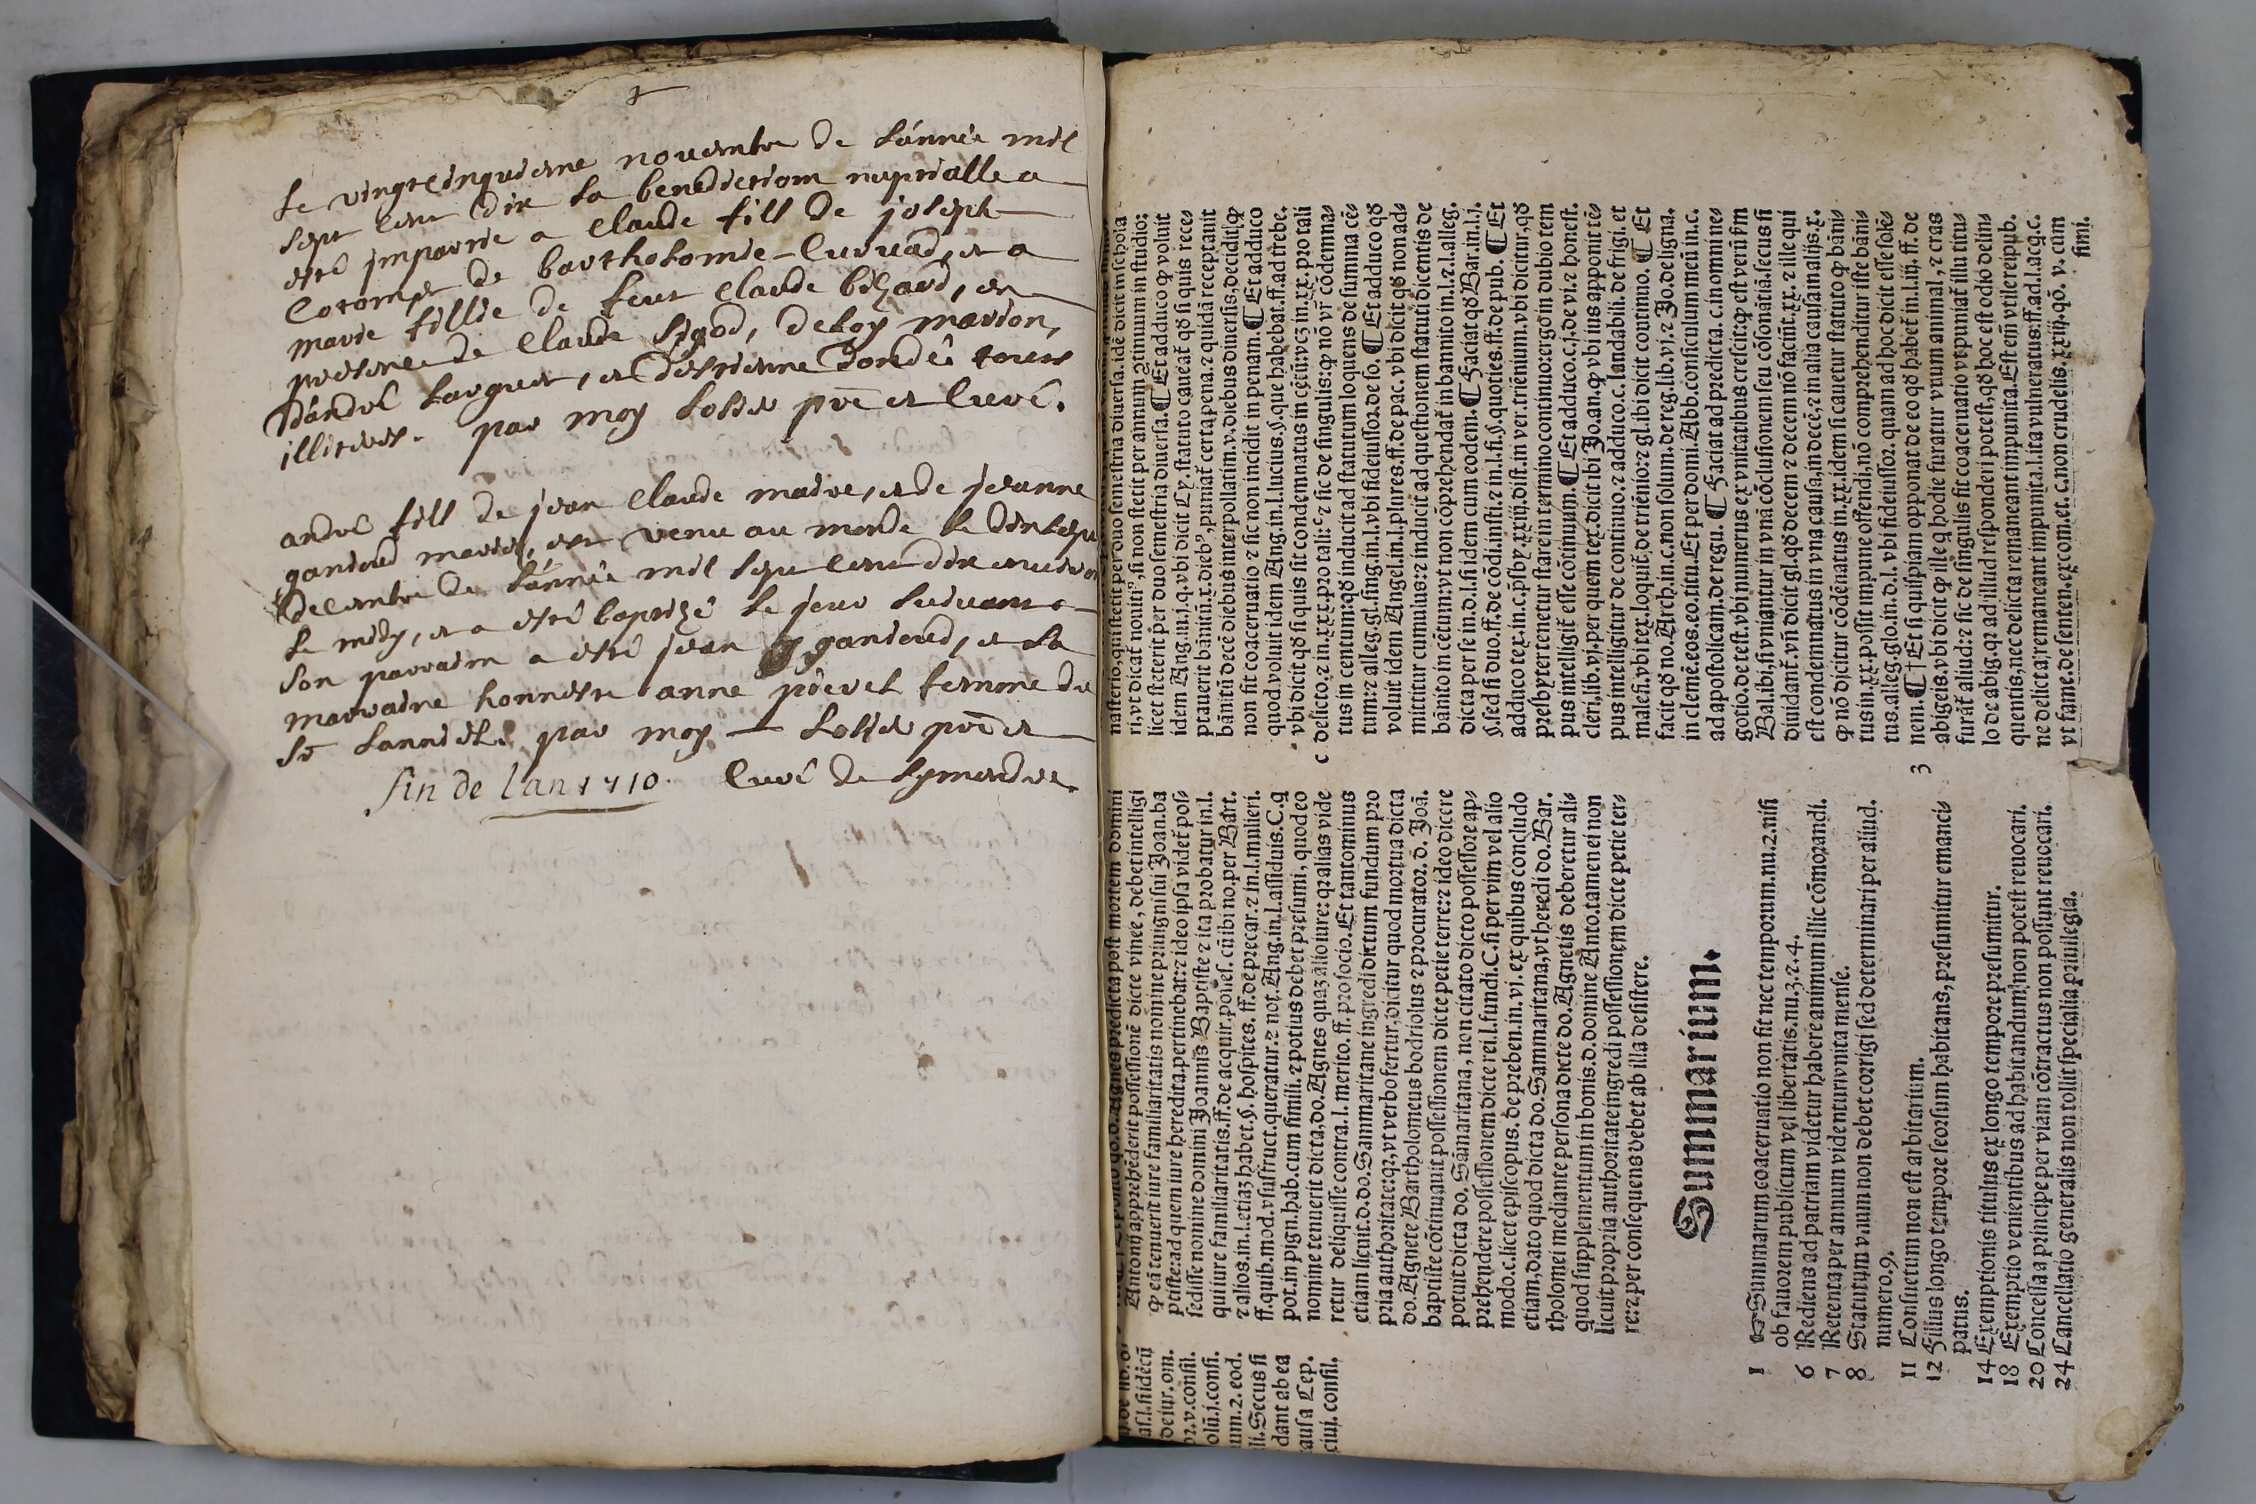 Le vingt cinquieme novembre de l'année mil
sept cent dix la benediction nuptialle a
esté jmpartie a claude fill de joseph
de bartholomie cuvuad, et a
marie fillie de feut claude bizard, en
presence de claude sigod, deloy marion,
d'andrè Larguet, et d'estienne Dondé tous
illiterés. par moy Losier prē et curé.
andrè fill de jean claude maire, et de jeanne
gandoud mariés, est venu au monde le
decembre de l'année mil sept cent dix environ
le midy, et a esté baptizé le jour suivant
son parrain a esté jean gandoud, et la
marraine honneste anne femme de
sr par moy Losier prē et
fin de l'an 1710. curé de symandre.
nasterio, qui stetit per duo semestria diuersa. idē dicit in schola
ri, vt dicat̄ nouiti⁹, si non stetit per annum continuum in studio:
licet steterit per duo semestria diuersa. ⁋Et adduco ꝙ voluit
idem Ang. in. j. q. vbi dicit Ly. statuto caueat̄ qd̄ si quis rece⸗
ptauerit bānitū. x. dieb⁹, puniat̄ certa pena. ⁊ quidā receptauit
bānitū decē diebus interpollatim. v. debus diuersis, decidit, ꝙ
non fit coaceruatio ⁊ sic non incidit in penam. ⁋Et adduco
quod voluit idem Ang. in. l. lucius. §. que habebat. ff. ad trebe.
vbi dicit qd̄ si quis sit condemnatus in cētū. vcꝫ in. xx. pro tali
c delicto. ⁊ in. xxx. pro tali: ⁊ sic de singulis: ꝙ nō vr̄ cōdemna⸗
tus in centum: qd̄ inducit ad statutum loquens de summa cē⸗
tum: ⁊ alleg. gl. sing. in. l. vbi fideiussor. de so. ⁋Et adduco qd̄
voluit idem Angel. in. l. plures. ff. de pac. vbi dicit qd̄ non ad⸗
mittitur cumulus: ⁊ inducit ad questionem statuti dicentis de
bānito in cētum: vt non cōprehendat̄ in bannito in. l. ⁊. l. alleg.
dicta per se in. d. l. si idem cum eodem. ⁋Faciat qd̄ Bar. in. l. j.
§. sed si duo. ff. de cōdi. insti. ⁊ in. l. si. §. quoties. ff. de pub. ⁋Et
adduco tex. in. c. p̄sby. xxij. dist. in ver. triēnium. vbi dicitur, qd̄
presbyter tenetur stare in termino continuo: ergo in dubio tem
pus intelligit̄ esse cōtinuum. ⁋Et adduco. c. j. de vi. ⁊ honest.
cleri. lib. vj. per quem tex. dicit ibi Jo. an. ꝙ vbi ius apponit tē⸗
pus intelligitur de continuo. ⁊ adduco. c. laudabili. de frigi. et
malefi. vbi tex. loquit̄. de triēnio: ⁊ gl. ibi dicit continuo. ⁋Et
facit qd̄ no. Arch. in. c. non solum. de reg. lib. vj. ⁊ Jo. de ligna.
in clemē. eos. eo. titu. Et per domi. Abb. consiculum meū in. c.
ad apostolicam. de regu. ⁋Faciat ad predicta. c. in omni ne⸗
gotio. de test. vbi numerus ex vnitatibus crescit: ꝙ est verū s̄m
Bal. ibi, si vniantur in vnā cōclusionem seu cōsonātiā. secus si
diuidant̄. vn̄ dicit gl. qd̄ decem ⁊ decem nō faciūt. xx. ⁊ ille qui
est condemnatus in vna causa, in decē, ⁊ in alia causa in aliis. x.
ꝙ nō dicitur cōdēnatus in. xx. idem si cauetur statuto ꝙ bāni⸗
tus in. xx. possit impune offendi, nō comprehenditur iste bāni⸗
tus. alleg. glo. in. d. l. vbi fideiussor. quam ad hoc dicit esse solē⸗
3 nem. ⁋†Et si quispiam opponat de eo qd̄ habet̄ in. l. iij. ff. de
abigeis. vbi dicit ꝙ ille q̄ hodie furatur vnum animal, ⁊ cras
furāt̄ aliud: ⁊ sic de singulis fit coaceruatio vt puniat̄ illu titu⸗
lo de abig. qꝛ ad illud responderi potest, qd̄ hoc est odio delin⸗
quentis, ne delicta remaneant impunita. Est em̄ vtile reipub.
ne delicta remanent impunita. l. ita vulneratus. ff. ad. l. aq. ⁊. c.
vt fame. de senten. excom. et. c. non crudelis. xxiij. q. v. cum
simi.
Antonij apprehēderit possessionē dicte vinee, debet intelligi
ꝙ eā tenuerit iure familiaritatis nomine priuigni sui Joan. ba
ptiste: ad quem iure hereditar. pertinebat: ⁊ ideo ipsa videt̄ pos⸗
sedisse nomine domini Joannis Baptiste ⁊ ita probatur in. l.
qui iure familiaritatis. ff. de acquir. posses. cū ibi no. per Bart.
⁊ alios. in. l. etiaꝫ habet. §. hospites. ff. de precar. ⁊ in. l. mulieri.
ff. quib. mod. vsusfruct. queratur. ⁊ not. Ang. in. l. assiduis. C. q̄
pot. in pign. hab. cum simili. ⁊ potius debet presumi, quod eo
nomine tenuerit dicta. do. Agnes quaꝫ alio iure: qꝛ alias vide
retur deliquisse contra. l. merito. ff. pro socio. Et tanto minus
etiam licuit. d. do. Sammaritane ingredi dictum fundum pro
pria authoritate: qꝛ, vt verbo fertur, dicitur quod mortua dicta
do. Agnete Bartholomeus bodriolus ⁊ procurator. d. Joā.
baptiste cōtinuauit possessionem dicte petie terre: ⁊ ideo dicere
potuit dicta do. Sāmaritana, non citato dicto possessore ap⸗
prehendere possessionem dicte rei. l. fundi. C. si per vim vel alio
modo. c. licet episcopus. de preben. in. vj. ex quibus concludo
etiam, dato quod dicta do. Sammaritana, vt heredi do. Bar.
tholomei mediante persona dicte do. Agnetis deberetur ali⸗
quod supplementum in bonis. d. domine Anto. tamen ei non
licuit propria authoritate ingredi possessionem dicte petie ter⸗
re: ⁊ per consequens debet ab illa desistere.
Summarium.
1 ☞Summarum coaceruatio non fit nec temporum. nu. 2. nisi
ob fauorem publicum vel libertatis. nu. 3. ⁊. 4.
6 Rediens ad patriam videtur habere animum illic cōmorandi.
7 Retenta per annum videntur inuita mense.
8 Statutum vnum non debet corrigi sed determinari per aliud.
numero. 9.
11 Consuetum non est arbitarium.
12 Filius longo tempore seorsum habitans, presumitur emanci⸗
patus.
14 Exemptionis titulus ex longo tempore presumitur.
18 Exemptio venientibus ad habitandum, non potest reuocari.
20 Concessa a principe per viam cōtractus non possunt reuocari.
24 Cancellatio generalis non tollit specialia priuilegia.
as. l. si idē cū
de iur. om.
v. consil.
olū. j. consi.
um. 2. eod.
li. Secus si
dant ab ea
ausa Cep.
ciuj. consil.